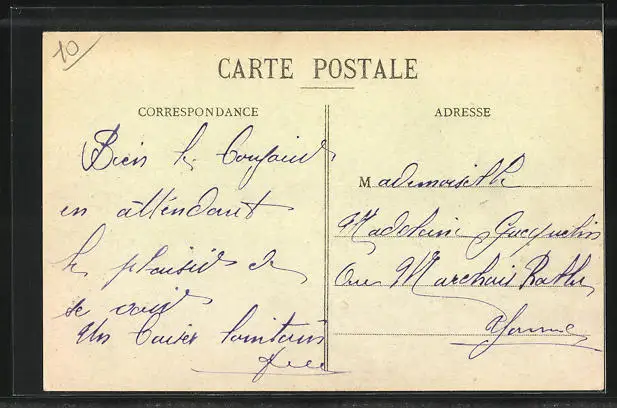 10
CARTE POSTALE
CORRESPONDANCE
ADRESSE
Bien le
en attendant
le plaisir de
se voir
un baiser lointain
Mademoiselle
Madeleine Jacquelin
Marchais
Yonne